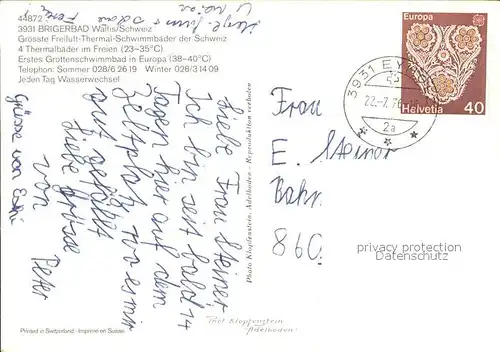 44872
3931 BRIGERBAD Wallis/Schweiz
Grösste Freiluft-Thermal-Schwimmbäder der Schweiz
4 Thermalbäder im Freien (23–35°C)
Erstes Grottenschwimmbad in Europa (38–40°C)
Telephon: Sommer 028/6 26 19 Winter 028/3 14 09
Jeden Tag Wasserwechsel
Liebe Frau Steiner
Ich bin seit bald 14
Tagen hier auf dem
Zeltplatz wo es mir
gut gefällt
Liebe Grüsse
von
Peter
Grüsse von
Photo Klopfenstein, Adelboden - Reproduktion verboten
Europa
Helvetia 40
3931 EY
22.-7.76
2a
Frau
E. Steiner
Bahr.
860
privacy protection
Datenschutz
Phot Klopfenstein
Adelboden
Printed in Switzerland - Imprimé en Suisse